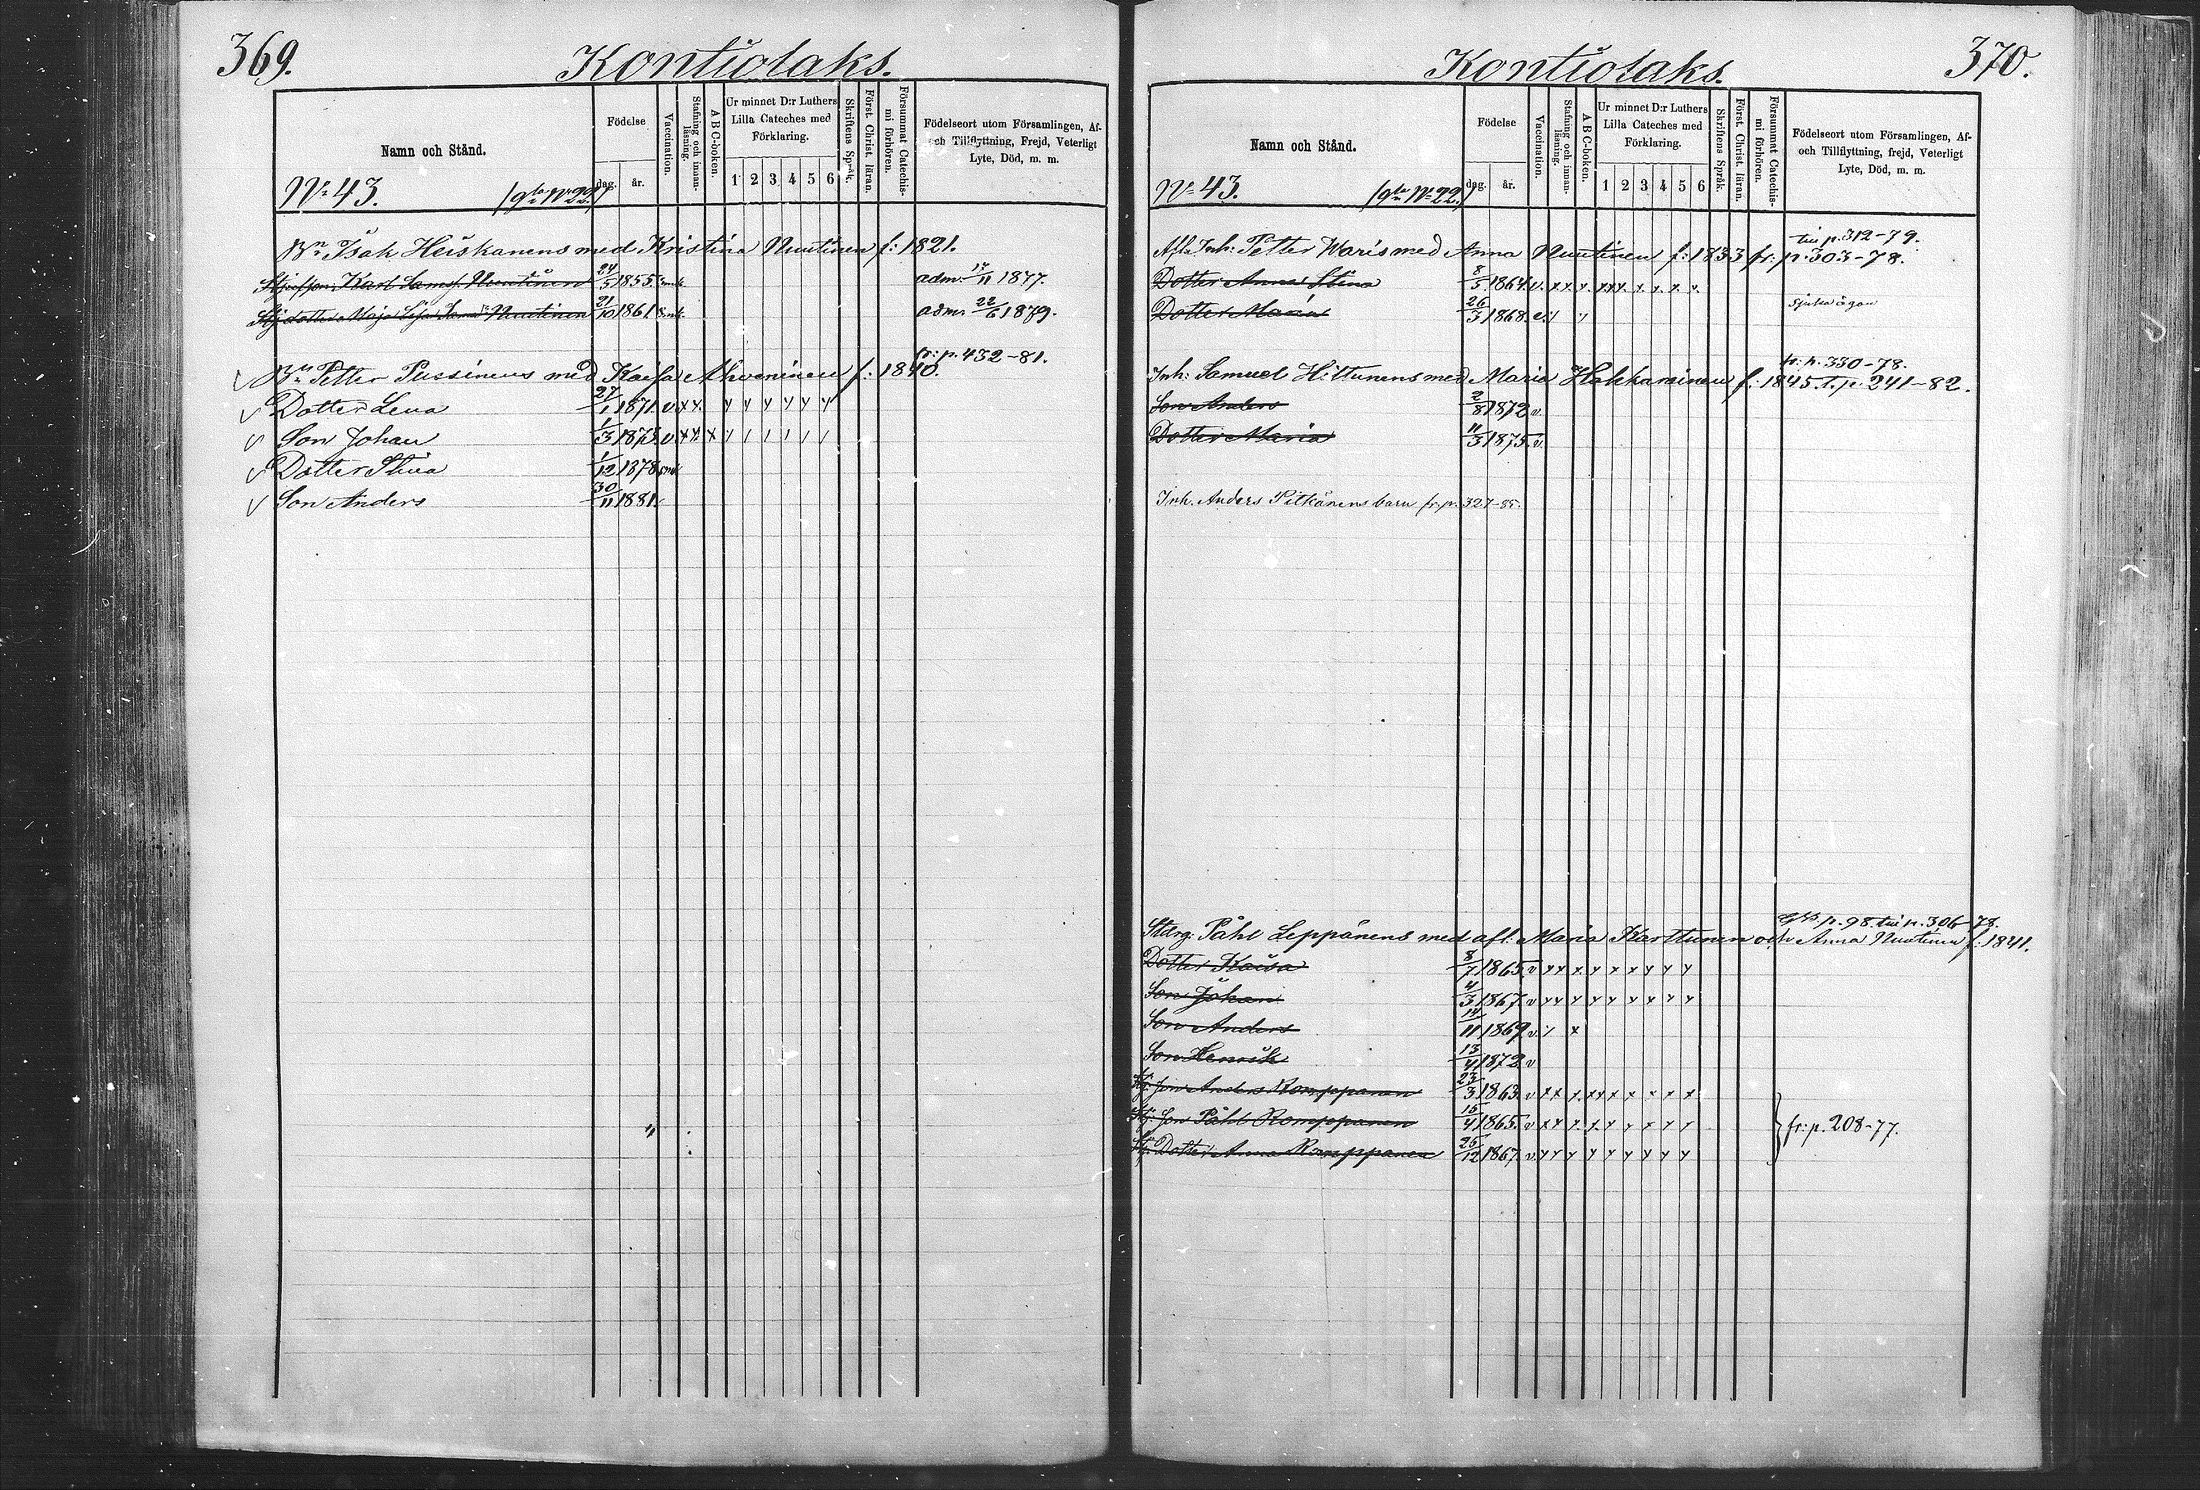 369.
Kontiolaks.
Namn och Stånd.
Födelse
dag. år.
Vaccination.
Stafning och innan-läsning.
A B C-boken.
Ur minnet D:r Luthers Lilla Cateches med Förklaring.
1 2 3 4 5 6
Skriftens Språk.
Först. Christ. läran.
Försummat Catechis-mi förhören.
Födelseort utom Församlingen, Af- och Tillflyttning, Frejd, Veterligt Lyte, Död, m. m.
No 43. (gla No 22.)
Bn Isak Heiskanens med Kristina Nuutinen f: 1821.
Karl Nuutinen 24/5 1855. adm. 17/11 1877.
Maja Lisa Nuutinen 21/10 1861. adm. 22/6 1879.
fr: p. 432-81.
Bn Petter Pussinens med Kaisa Ahveninen f: 1840.
Dotter Lena 27/1 1871. v. x x. y y y y y y
Son Johan 1/3 1875. v. x x x y / / / / /
Dotter Stina 1/12 1878
Son Anders 30/11 1881.
370.
Kontiolaks.
Namn och Stånd.
Födelse
dag. år.
Vaccination.
Stafning och innan-läsning.
A B C-boken.
Ur minnet D:r Luthers Lilla Cateches med Förklaring.
1 2 3 4 5 6
Skriftens Språk.
Först. Christ. läran.
Försummat Catechis-mi förhören.
Födelseort utom Församlingen, Af- och Tillflyttning, frejd, Veterligt Lyte, Död, m. m.
No 43. (gla No 22.)
till p. 312-79.
Afl. Inh: Petter Waris med Anna Nuutinen f: 1833 fr: p. 303-78.
Dotter Anna Stina 8/5 1864. v. x x. x. x x x. x. x. x. x.
Dotter Maria 26/3 1868. sjuka ögon
fr: p. 330-78.
Inh: Samuel Hiltunens med Maria Hakkarainen f. 1845. t. p. 241-82.
Son Anders 2/8 1872 v.
Dotter Maria 11/3 1875. v.
Inh. Anders Pitkänens barn fr. p. 327-85.
p. 98. till p. 306-78.
Påhl Leppänens med afl. Maria Karttunen och Anna Nuutinen f: 1841.
Dotter Kaisa 8/7 1865. v x x x y x x y y y
Son Johan 4/3 1867. v y y y y y y y y y
Son Anders 14/11 1869 v. / x
Son Henrik 13/4 1872 v
Son Anders Romppanen 23/3 1863. v x x x. x x x x x x
Son Påhl Romppanen 15/4 1865. v x x x. x. x y x y y
Dotter Anna Romppanen 25/12 1867. v. y y y y y y y y y
fr: p. 208-77.